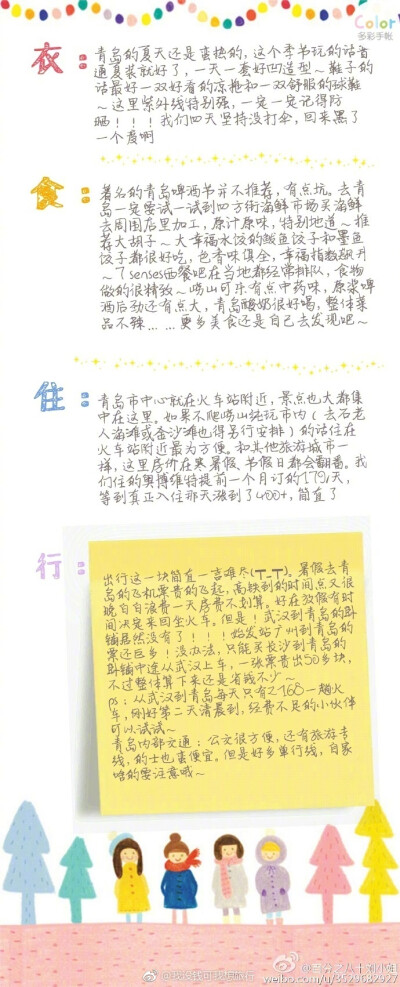 Color
多彩手帐
衣：
青岛的夏天还是蛮热的，这个季节玩的话普
通夏装就好了，一天一套好凹造型～鞋子的
话最好一双好看的凉拖和一双舒服的球鞋
～这里紫外线特别强，一定一定记得防
晒！！！我们四天坚持没打伞，回来黑了
一个度啊
食：
著名的青岛啤酒节并不推荐，有点坑。去青
岛一定要试一试到四方街海鲜市场买海鲜
去周围店里加工，原汁原味，特别地道～推
荐大胡子～大幸福水饺的鲅鱼饺子和墨鱼
饺子都很好吃，色香味俱全，幸福指数飙升
～7 senses西餐吧在当地都经常排队，食物
做的很精致～崂山可乐有点中药味，原浆啤
酒后劲还有点大，青岛酸奶很好喝，整体菜
品不辣……更多美食还是自己去发现吧～
住：
青岛市中心就在火车站附近，景点也大都集
中在这里。如果不爬崂山纯玩市内（去石老
人海滩或金沙滩也得另行安排）的话住在
火车站附近最为方便。和其他旅游城市一
样，这里房价在寒暑假、节假日都会翻番。我
们住的奥博维特提前一个月订的179/天，
等到真正入住那天涨到了400+，简直了
行：
出行这一块简直一言难尽(┬_┬)。暑假去青
岛的飞机票贵的飞起，高铁到的时间点又很
晚白白浪费一天房费不划算。好在放假有时
间决定来回坐火车。但是！武汉到青岛的卧
铺居然没有了！！！始发站广州到青岛的
票还巨多！没办法，只能买长沙到青岛的
卧铺中途从武汉上车，一张票贵出50多块，
不过整体算下来还是省钱不少～
ps：从武汉到青岛每天只有2168一趟火
车，刚好第二天清晨到，经费不足的小伙伴
可以试试～
青岛内部交通：公交很方便，还有旅游专
线，的士也蛮便宜。但是好多单行线，自家
啥的要注意哦～
weibo.com/u/3529682927